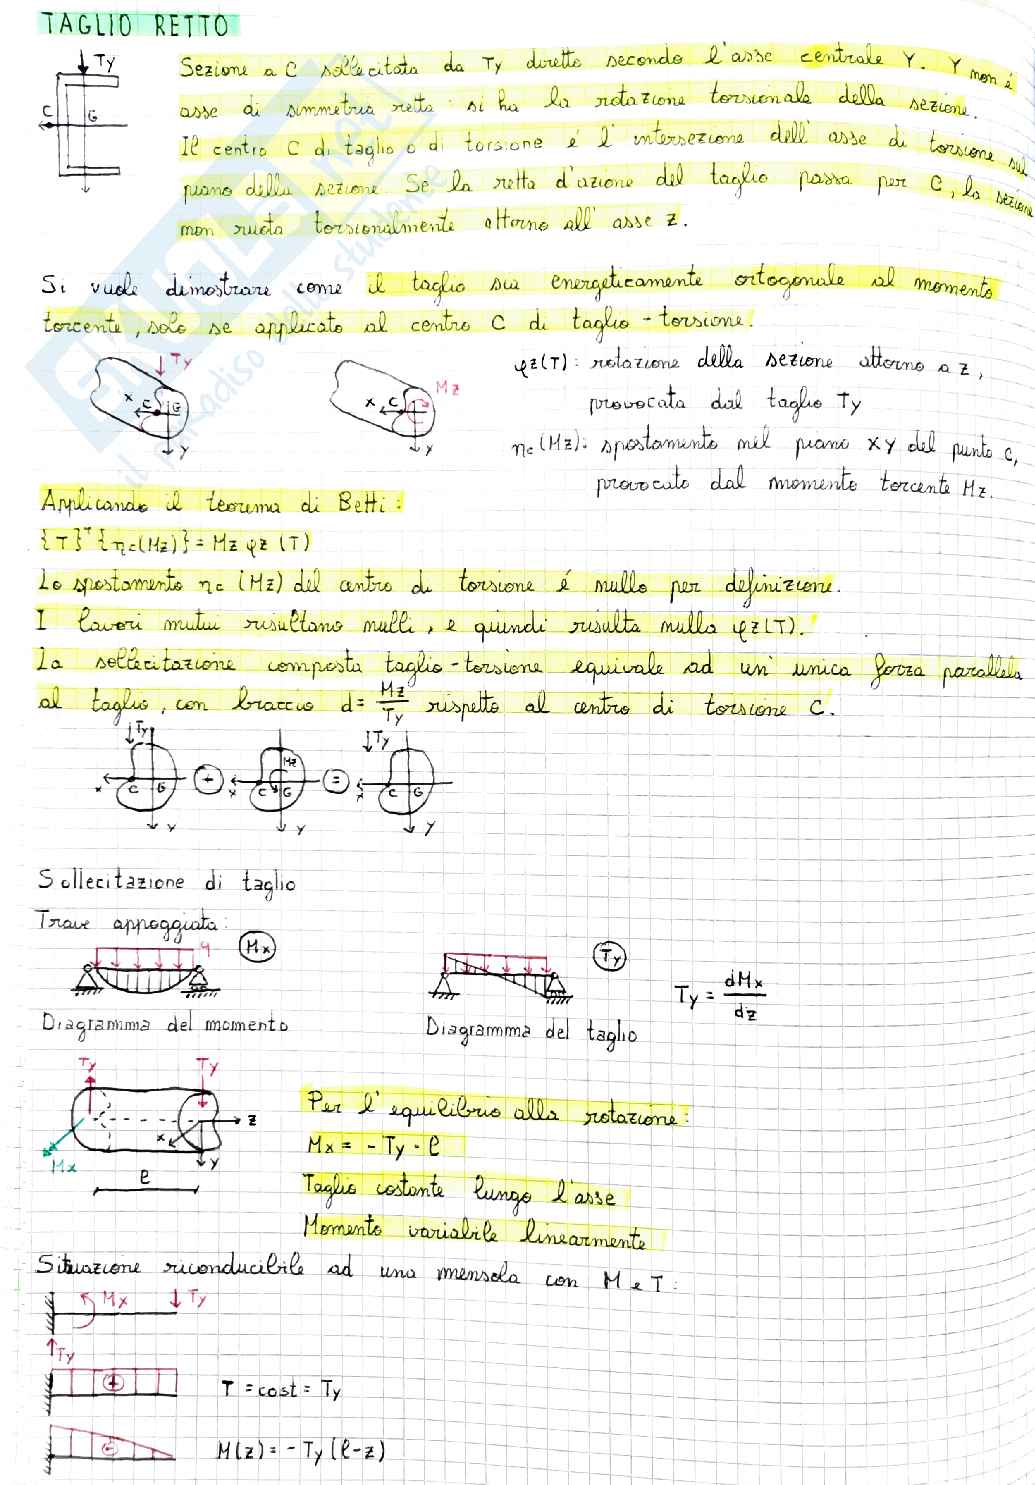 TAGLIO RETTO
Ty
C
G
Sezione a C sollecitata da Ty diretto secondo l'asse centrale Y. Y non é
asse di simmetria retta: si ha la rotazione torsionale della sezione.
Il centro C di taglio o di torsione é l'intersezione dell'asse di torsione sul
piano della sezione. Se la retta d'azione del taglio passa per C, la sezione
non ruota torsionalmente attorno all'asse z.
Si vuole dimostrare come il taglio sia energeticamente ortogonale al momento
torcente, solo se applicato al centro C di taglio-torsione.
Ty
x C G
Y
Mz
x C
Y
φz(T): rotazione della sezione attorno a z,
provocata dal taglio Ty
ηc(Mz): spostamento nel piano XY del punto C,
provocato dal momento torcente Mz.
Applicando il teorema di Betti:
{T}ᵀ{ηc(Mz)} = Mz φz(T)
Lo spostamento ηc (Mz) del centro di torsione é nullo per definizione.
I lavori mutui risultano nulli, e quindi risulta nulla φz(T).
La sollecitazione composta taglio-torsione equivale ad un'unica forza parallela
al taglio, con braccio d = Mz/Ty rispetto al centro di torsione C.
Ty
x C G
Y
+
Mz
x C G
Y
=
Ty
x C G
Y
Sollecitazione di taglio
Trave appoggiata:
q
Mx
Ty
Ty = dMx/dz
Diagramma del momento
Diagrammma del taglio
Ty
Ty
z
x
Y
Mx
l
Per l'equilibrio alla rotazione:
Mx = - Ty · l
Taglio costante lungo l'asse
Momento variabile linearmente
Situazione riconducibile ad una mensola con M e T:
Mx
Ty
Ty
+
T = cost = Ty
-
M(z) = - Ty (l-z)
il paradiso dello studente